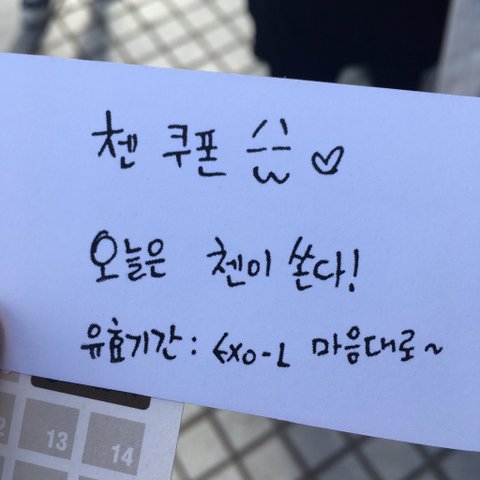 첸 쿠폰 ♡
오늘은 첸이 쏜다!
유효기간: EXO-L 마음대로~
13 14